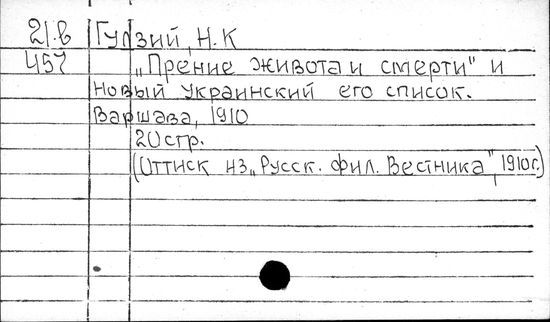 21.в Гудзий, Н.К
457 „Прение живота и смерти" и
новый украинский его список.
Варшава, 1910
20 стр.
(Оттиск из „Русск. фил. Вестника", 1910г.)